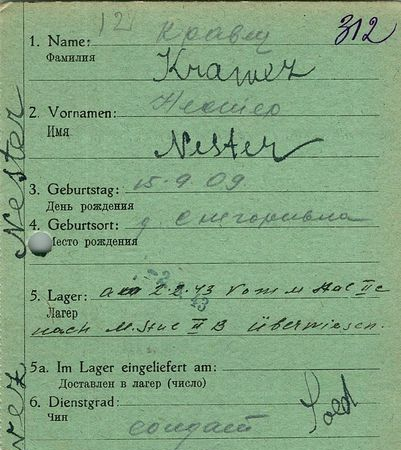 12 312
1. Name: Кравец
Фамилия Krawez
2. Vornamen: Нестер
Имя Nester
3. Geburtstag: 15.9.09
День рождения
4. Geburtsort: д Снегоривка
Место рождения
5. Lager: am 2.2.43 vom M Stal II C
Лагер
nach M. Stal II B überwiesen.
5a. Im Lager eingeliefert am:
Доставлен в лагер (число)
6. Dienstgrad: Sold
Чин солдат
Nester